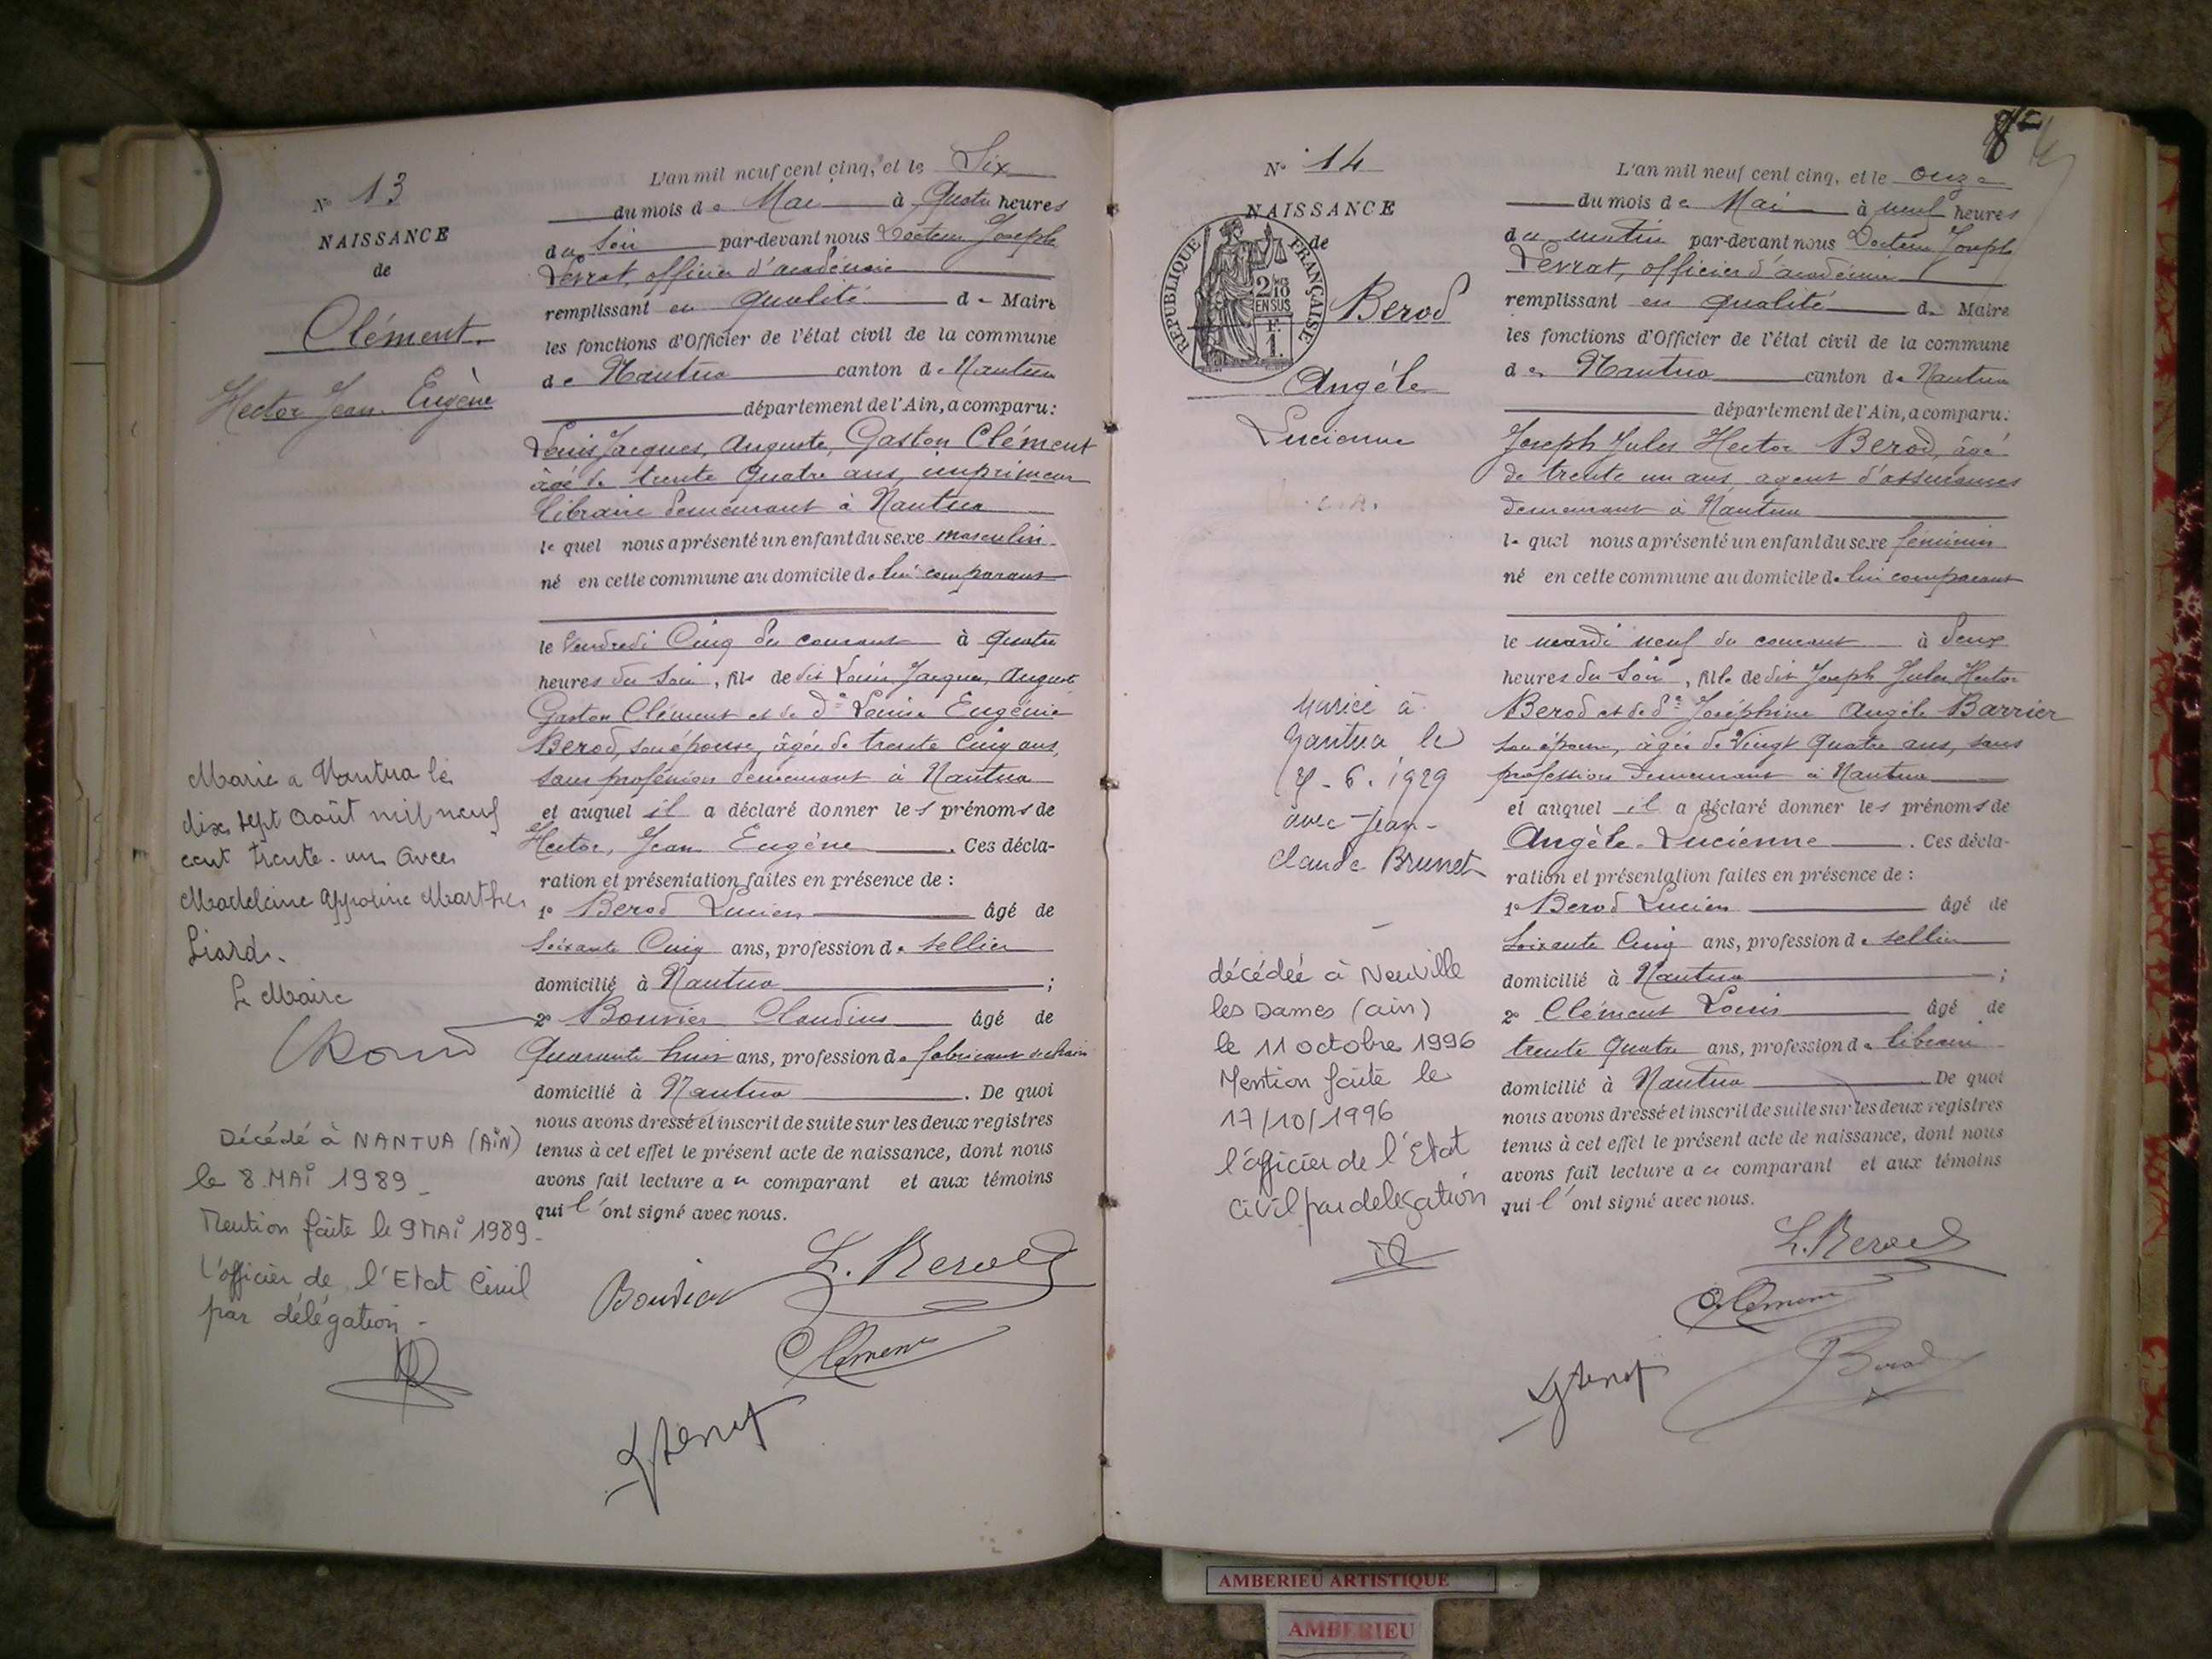 N° 13
NAISSANCE
de
Clément
Hector Jean Eugène
Marié à Nantua le
dix sept août mil neuf
cent trente-un avec
Madeleine Appoline Marthe
Liard.
Le Maire
Décédé à NANTUA (AIN)
le 8 MAI 1989 -
Mention faite le 9 MAI 1989 -
L'officier de l'Etat Civil
par délégation -
L'an mil neuf cent cinq, et le Six
du mois de Mai à Quatre heures
du Soir par-devant nous Docteur Joseph
Levrat, officier d'académie
remplissant en qualité de Maire
les fonctions d'Officier de l'état civil de la commune
de Nantua canton de Nantua
département de l'Ain, a comparu:
Louis Jacques, Auguste, Gaston Clément
âgé de trente quatre ans, imprimeur
libraire demeurant à Nantua
lequel nous a présenté un enfant du sexe masculin
né en cette commune au domicile de lui comparant
le Vendredi Cinq du courant à quatre
heures du Soir, fils de dit Louis, Jacques, Auguste
Gaston Clément et de De Louise Eugénie
Berod, son épouse, âgée de trente cinq ans,
sans profession demeurant à Nantua
et auquel il a déclaré donner les prénoms de
Hector, Jean Eugène. Ces décla-
ration et présentation faites en présence de :
1° Berod Lucien âgé de
soixante Cinq ans, profession de sellier
domicilié à Nantua ;
2° Bouvier Claudius âgé de
Quarante huit ans, profession de fabricant de
domicilié à Nantua. De quoi
nous avons dressé et inscrit de suite sur les deux registres
tenus à cet effet le présent acte de naissance, dont nous
avons fait lecture au comparant et aux témoins
qui l'ont signé avec nous.
L. Berod
Bouvier
Clément
N° 14
NAISSANCE
de
RÉPUBLIQUE FRANÇAISE
2/10
EN SUS
1 F.
Berod
Angéle
Lucienne
Mariée à
Nantua le
- 6. 1929
avec Jean-
Claude Brunet
décédée à Neuville
les Dames (ain)
le 11 octobre 1996
Mention faite le
17/10/1996
l'officier de l'Etat
Civil par délégation
L'an mil neuf cent cinq, et le onze
du mois de Mai à neuf heures
du matin par-devant nous Docteur Joseph
Levrat, officier d'académie
remplissant en qualité de Maire
les fonctions d'Officier de l'état civil de la commune
de Nantua canton de Nantua
département de l'Ain, a comparu:
Joseph Jules Hector Berod, âgé
de trente un ans, agent d'assurances
demeurant à Nantua
lequel nous a présenté un enfant du sexe féminin
né en cette commune au domicile de lui comparant
le mardi neuf du courant à deux
heures du Soir, fille de dit Joseph Jules Hector
Berod et de De Joséphine Angèle Barrier
son épouse, âgée de Vingt quatre ans, sans
profession demeurant à Nantua
et auquel il a déclaré donner les prénoms de
Angèle-Lucienne. Ces décla-
ration et présentation faites en présence de :
1° Berod Lucien âgé de
soixante cinq ans, profession de sellier
domicilié à Nantua ;
2° Clément Louis âgé de
trente quatre ans, profession de libraire
domicilié à Nantua De quoi
nous avons dressé et inscrit de suite sur les deux registres
tenus à cet effet le présent acte de naissance, dont nous
avons fait lecture au comparant et aux témoins
qui l'ont signé avec nous.
L. Berod
Clément
Berod
AMBERIEU ARTISTIQUE
AMBERIEU